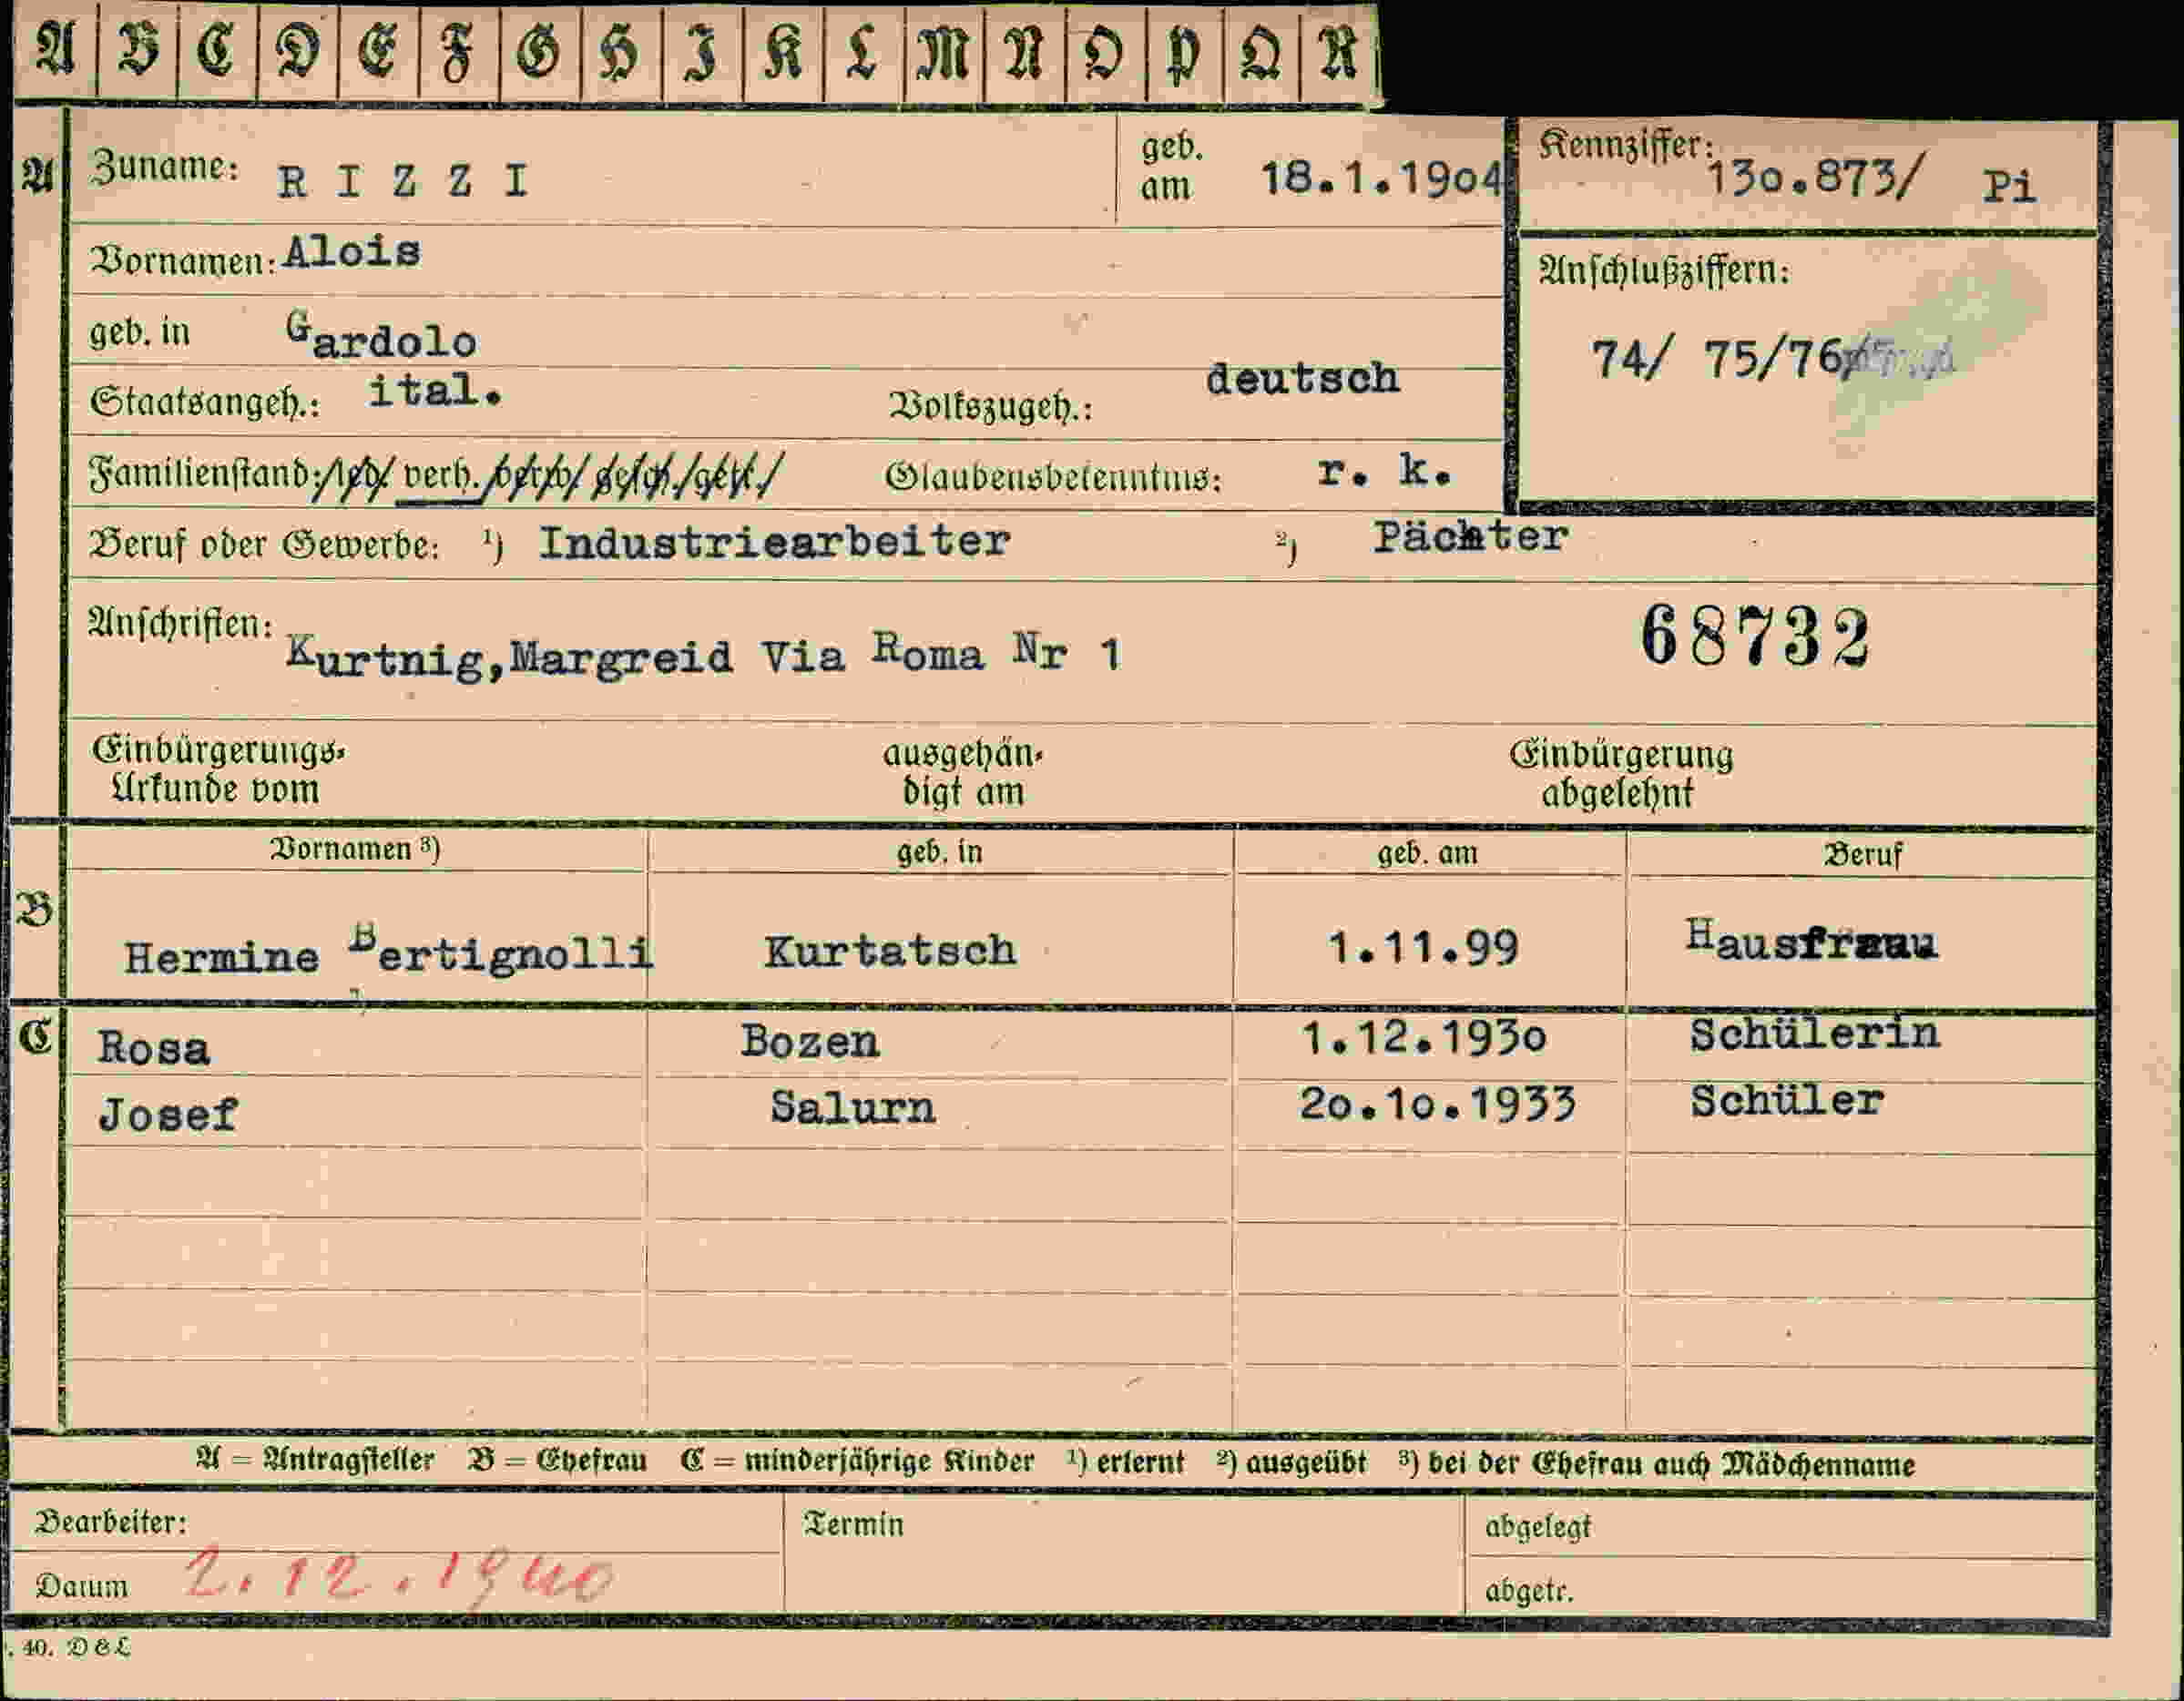 A B C D E F G H I K L M N O P Q R
A Zuname: RIZZI geb. am 18.1.1904 Kennziffer: 130.873/ Pi
Vornamen: Alois
Anschlußziffern:
geb. in Gardolo
74/ 75/76
Staatsangeh.: ital. Volkszugeh.: deutsch
Familienstand: led. verh. verw. gesch. getr. Glaubensbekenntnis: r. k.
Beruf oder Gewerbe: 1) Industriearbeiter 2) Pächter
Anschriften: Kurtnig,Margreid Via Roma Nr 1 68732
Einbürgerungs-Urkunde vom ausgehän-digt am Einbürgerung abgelehnt
Vornamen 3) geb. in geb. am Beruf
B Hermine Bertignolli Kurtatsch 1.11.99 Hausfrau
C Rosa Bozen 1.12.1930 Schülerin
Josef Salurn 20.10.1933 Schüler
A = Antragsteller B = Ehefrau C = minderjährige Kinder 1) erlernt 2) ausgeübt 3) bei der Ehefrau auch Mädchenname
Bearbeiter: Termin abgelegt
Datum 2.12.1940 abgetr.
. 40. D&L